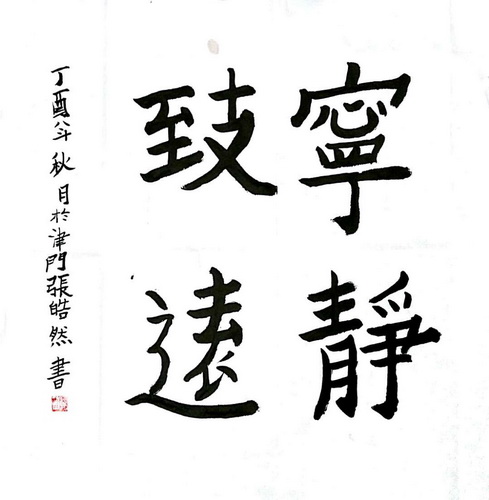 寧靜
致遠
丁酉年秋月於津門張皓然書